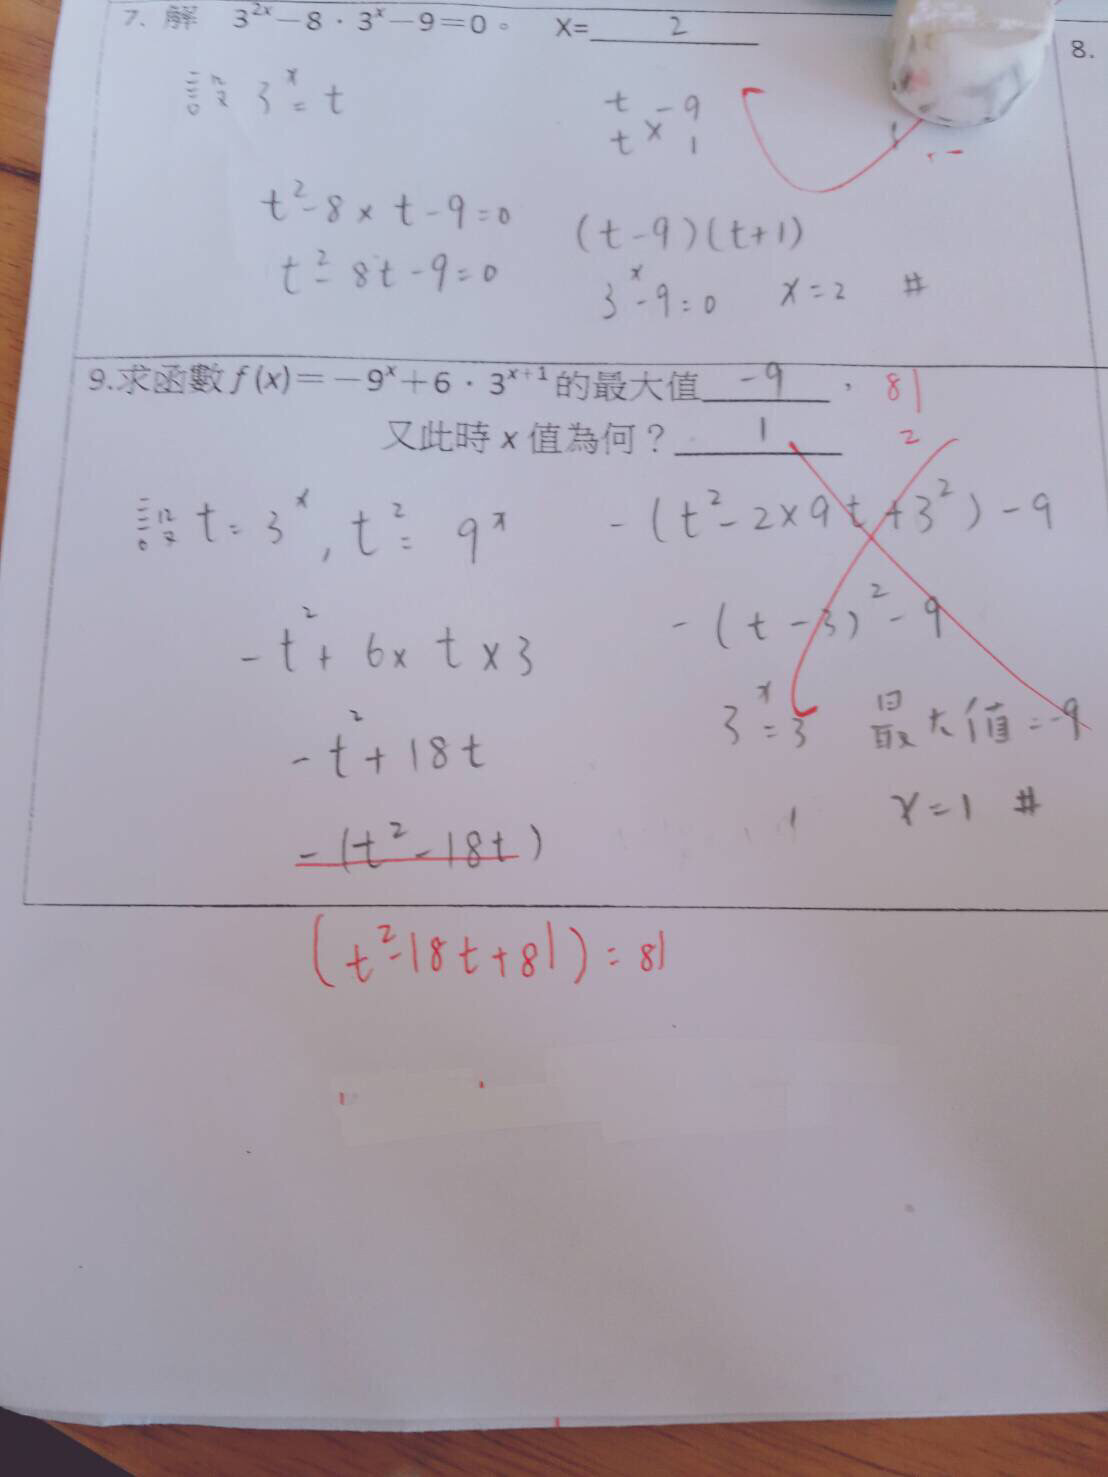 7. 解 3²ˣ－8．3ˣ－9＝0。 X= 2
8.
設 3ˣ = t
t -9
t × 1
t² - 8 × t - 9 = 0
(t-9)(t+1)
t² - 8t - 9 = 0
3ˣ - 9 = 0 x = 2 #
9.求函數 f (x)＝－9ˣ＋6．3ˣ⁺¹ 的最大值 -9 ， 81
又此時 x 值為何？ 1 2
設 t = 3ˣ , t² = 9ˣ
-(t² - 2×9t + 3²) - 9
-t² + 6 × t × 3
-(t - 3)² - 9
-t² + 18t
3ˣ = 3 最大值 = -9
-(t² - 18t)
1 x = 1 #
(t² - 18t + 81) = 81